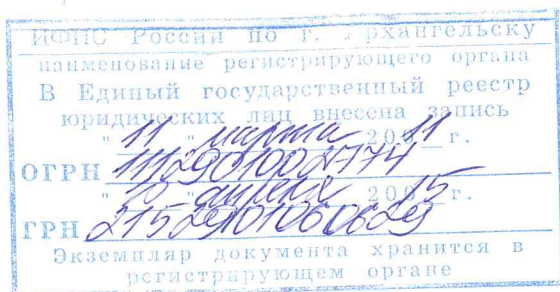 ИФНС России по г. Архангельску
наименование регистрирующего органа
В Единый государственный реестр
юридических лиц внесена запись
" 11 " марта 2011 г.
ОГРН
" 10 " апреля 2015 г.
ГРН 2152901060629
Экземпляр документа хранится в
регистрирующем органе